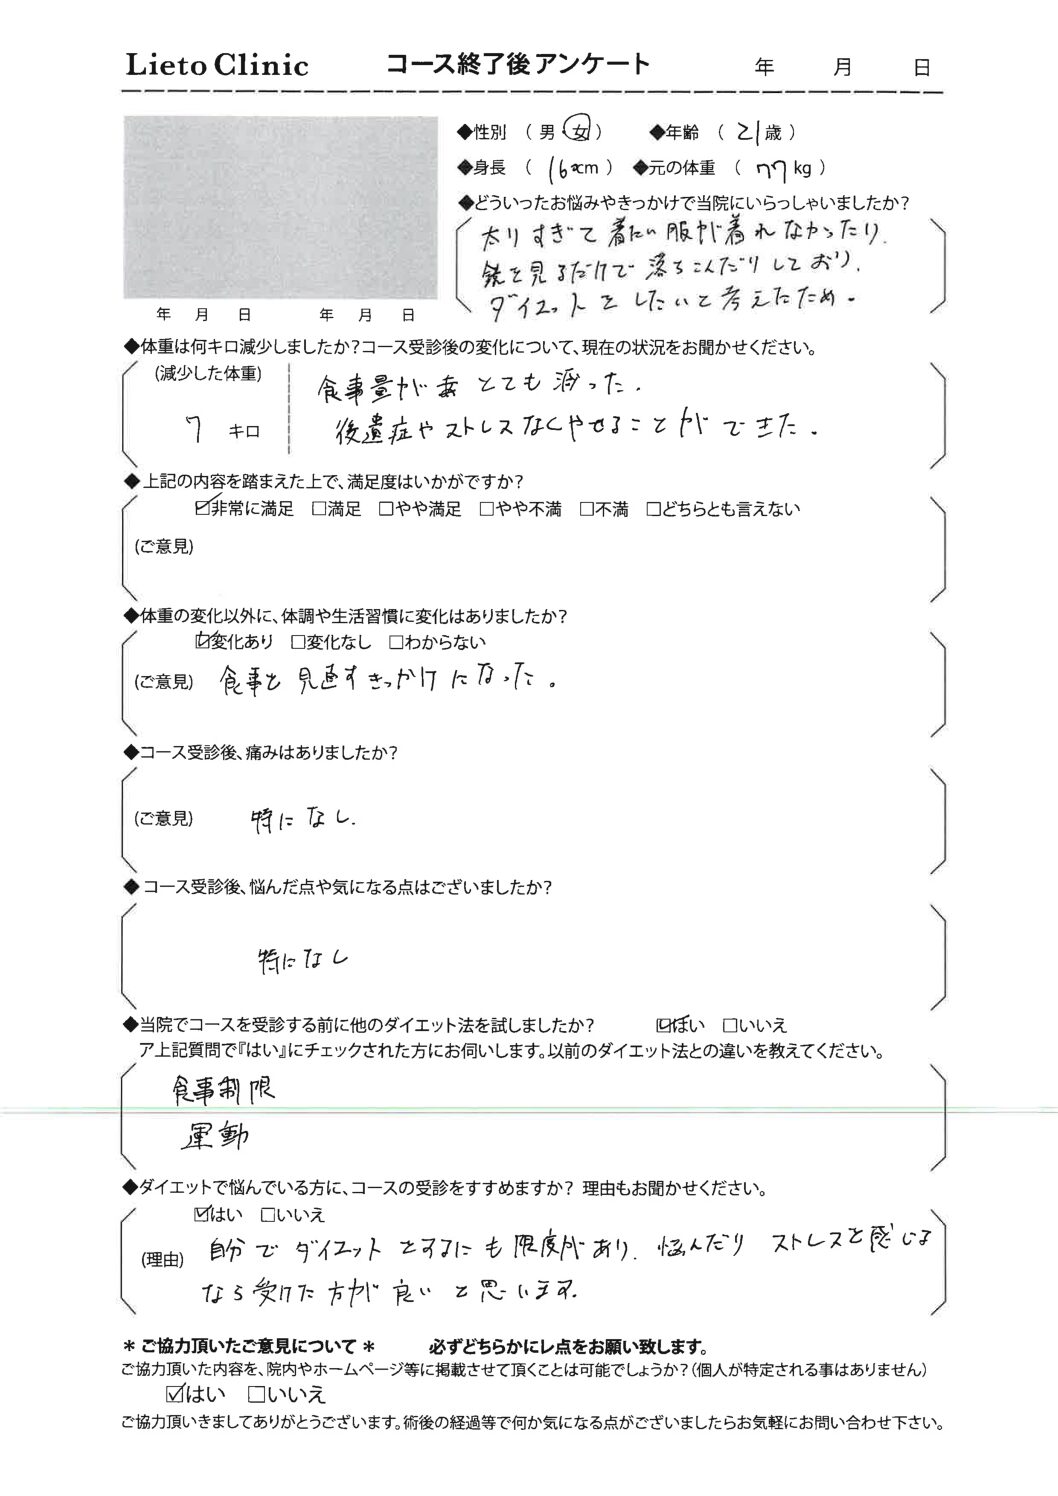 Lieto Clinic コース終了後アンケート 年 月 日
◆性別 ( 男・女 ) ◆年齢 ( 21歳 )
◆身長 ( cm ) ◆元の体重 ( 77kg )
◆どういったお悩みやきっかけで当院にいらっしゃいましたか?
太りすぎて着たい服が着れなかったり、
鏡を見るだけで落ちこんだりしており、
ダイエットをしたいと考えたため。
年 月 日 年 月 日
◆体重は何キロ減少しましたか?コース受診後の変化について、現在の状況をお聞かせください。
(減少した体重) 食事量がとても減った。
7 キロ 後遺症やストレスなくやせることができた。
◆上記の内容を踏まえた上で、満足度はいかがですか?
☑非常に満足 □満足 □やや満足 □やや不満 □不満 □どちらとも言えない
(ご意見)
◆体重の変化以外に、体調や生活習慣に変化はありましたか?
☑変化あり □変化なし □わからない
(ご意見) 食事を見直すきっかけになった。
◆コース受診後、痛みはありましたか?
(ご意見) 特になし.
◆コース受診後、悩んだ点や気になる点はございましたか?
特になし
◆当院でコースを受診する前に他のダイエット法を試しましたか? ☑はい □いいえ
ア上記質問で『はい』にチェックされた方にお伺いします。以前のダイエット法との違いを教えてください。
食事制限
運動
◆ダイエットで悩んでいる方に、コースの受診をすすめますか? 理由もお聞かせください。
☑はい □いいえ
(理由) 自分でダイエットをするにも限度があり、悩んだりストレスを感じる
なら受けた方が良いと思います.
* ご協力頂いたご意見について * 必ずどちらかにレ点をお願い致します。
ご協力頂いた内容を、院内やホームページ等に掲載させて頂くことは可能でしょうか?(個人が特定される事はありません)
☑はい □いいえ
ご協力頂いきましてありがとうございます。術後の経過等で何か気になる点がございましたらお気軽にお問い合わせ下さい。